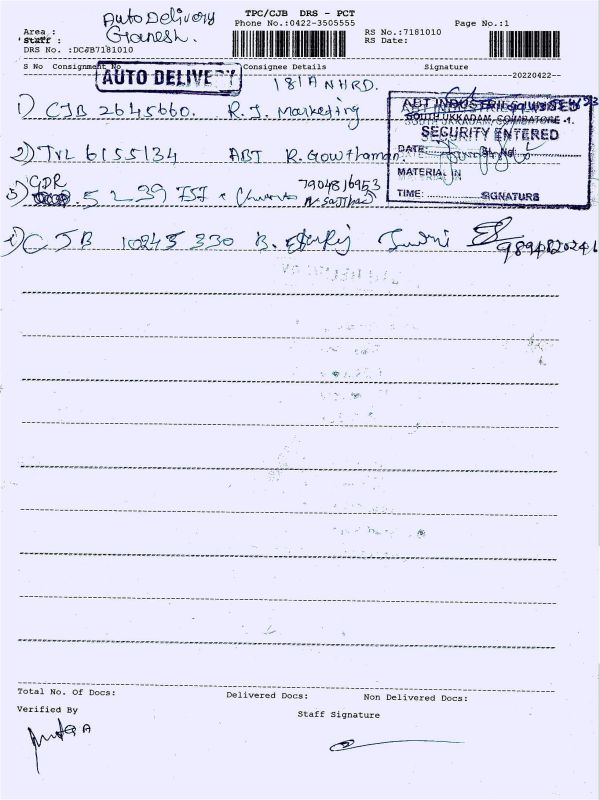 Auto Delivery
Ganesh.
TPC/CJB DRS - PCT
Phone No.:0422-3505555
Page No.:1
Area :
Staff :
RS No.:7181010
RS Date:
DRS No. :DCJB7181010
S No Consignment No
Consignee Details
Signature
AUTO DELIVERY
181A NHRD.
20220422--
1) CJB 2645660. R.J. Marketing
ABT INDUSTRIES LIMITED
SOUTH UKKADAM, COIMBATORE -1.
SECURITY ENTERED
DATE:
SL. No:
MATERIAL IN
TIME:
SIGNATURE
2) TVL 6155134 ABT R. Gowthaman
3) GDR 5239
4) CJB 10245330 B.
Total No. Of Docs:
Delivered Docs:
Non Delivered Docs:
Verified By
Staff Signature